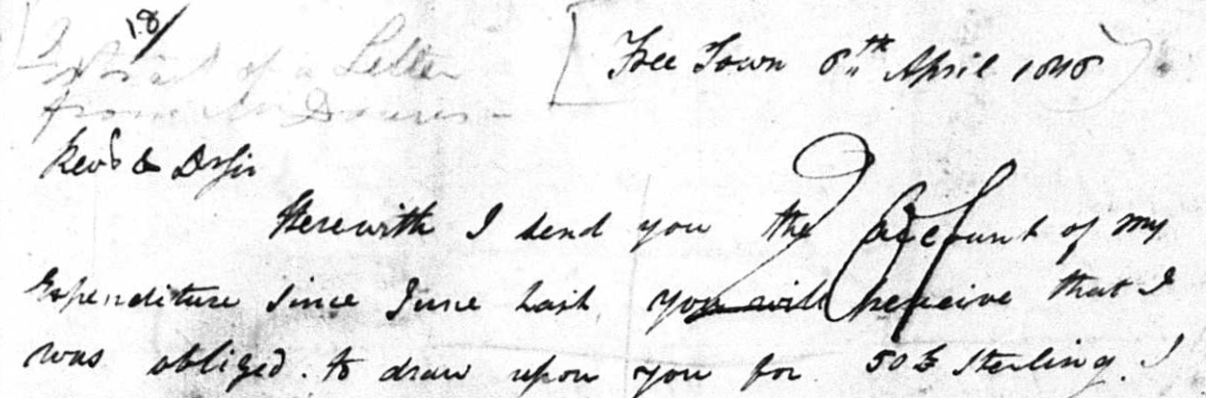 18/
of a Letter
from Mr Davies -
Free Town 8th April 1818
Revd & Dr Sir
Herewith I send you the account of my
Expenditure since June last, you will perceive that I
was obliged to draw upon you for 50£ Sterling. I